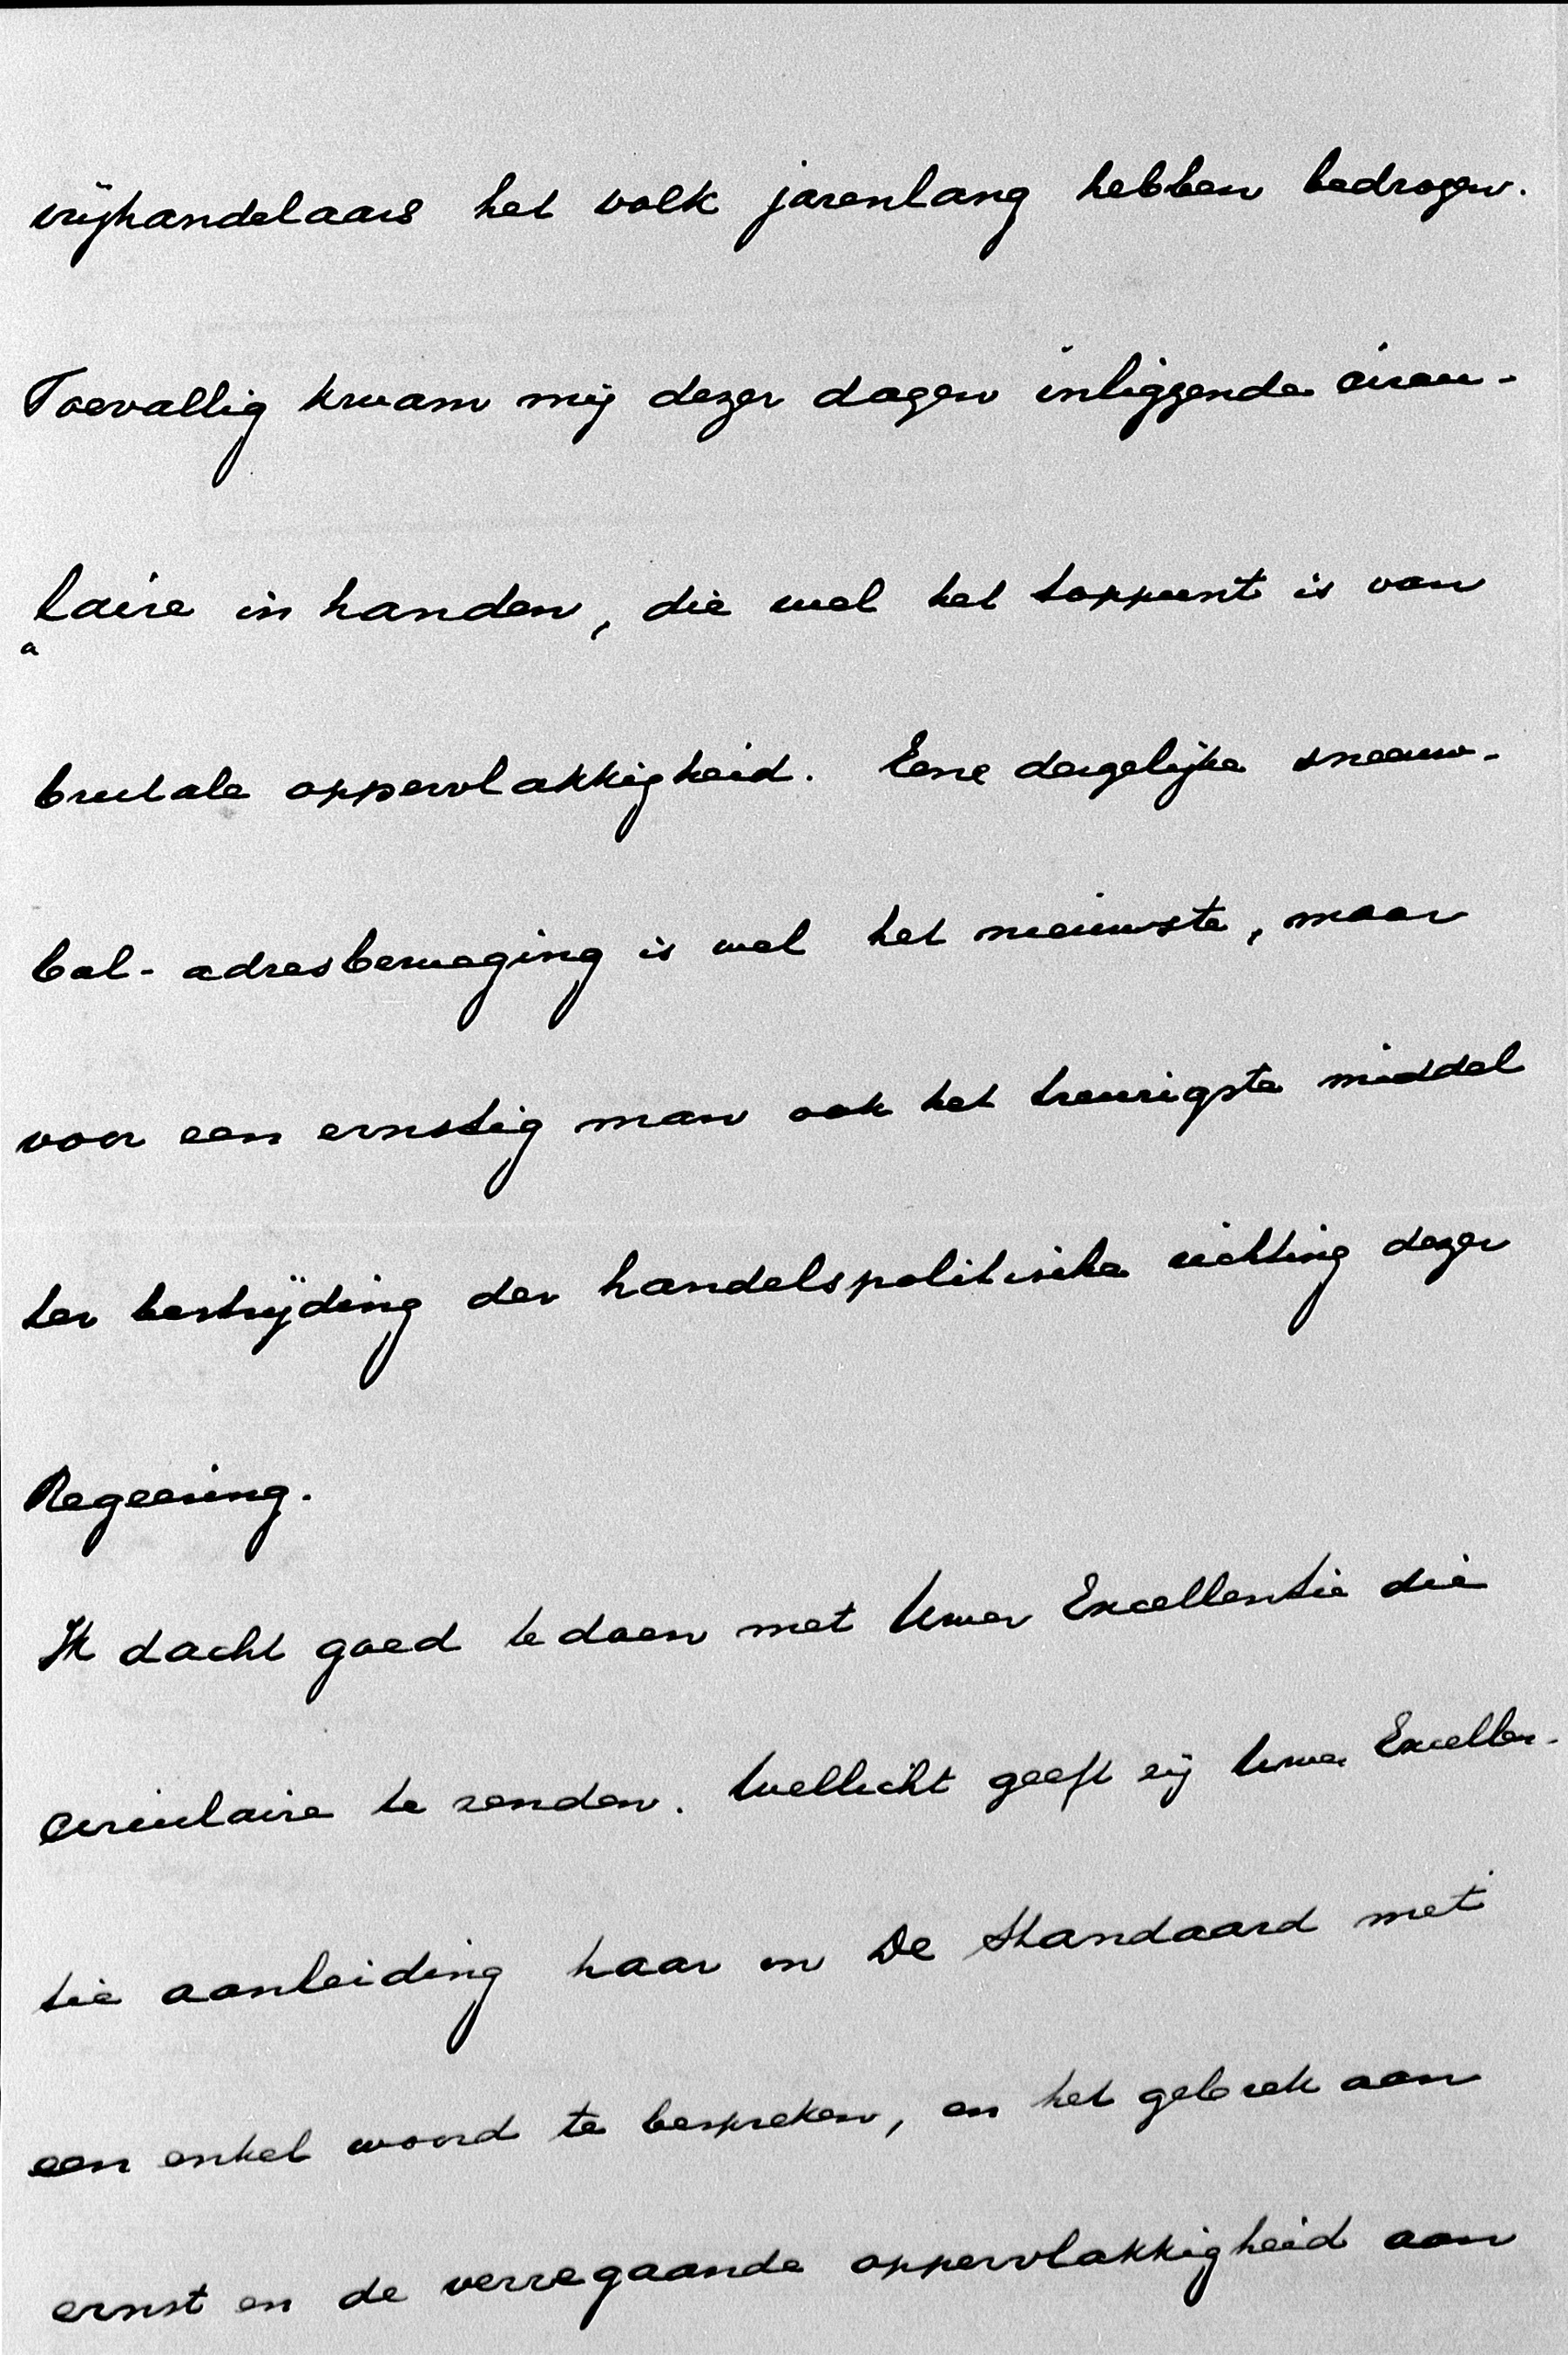 vrijhandelaars het volk jarenlang hebben bedrogen.
Toevallig kwam mij dezer dagen inliggende circu-
laire in handen, die wel het toppunt is van
a
brutale oppervlakkigheid. Eene dergelijke sneeuw-
bal-adresbeweging is wel het nieuwste, maar
voor een ernstig man ook het treurigste middel
ter bestrijding der handelspolitieke richting dezer
Regeering.
Ik dacht goed te doen met Uwer Excellentie die
circulaire te zenden. Wellicht geeft zij Uwer Excellen-
tie aanleiding haar in De Standaard met
een enkel woord te bespreken, en het gebrek aan
ernst en de verregaande oppervlakkigheid aan